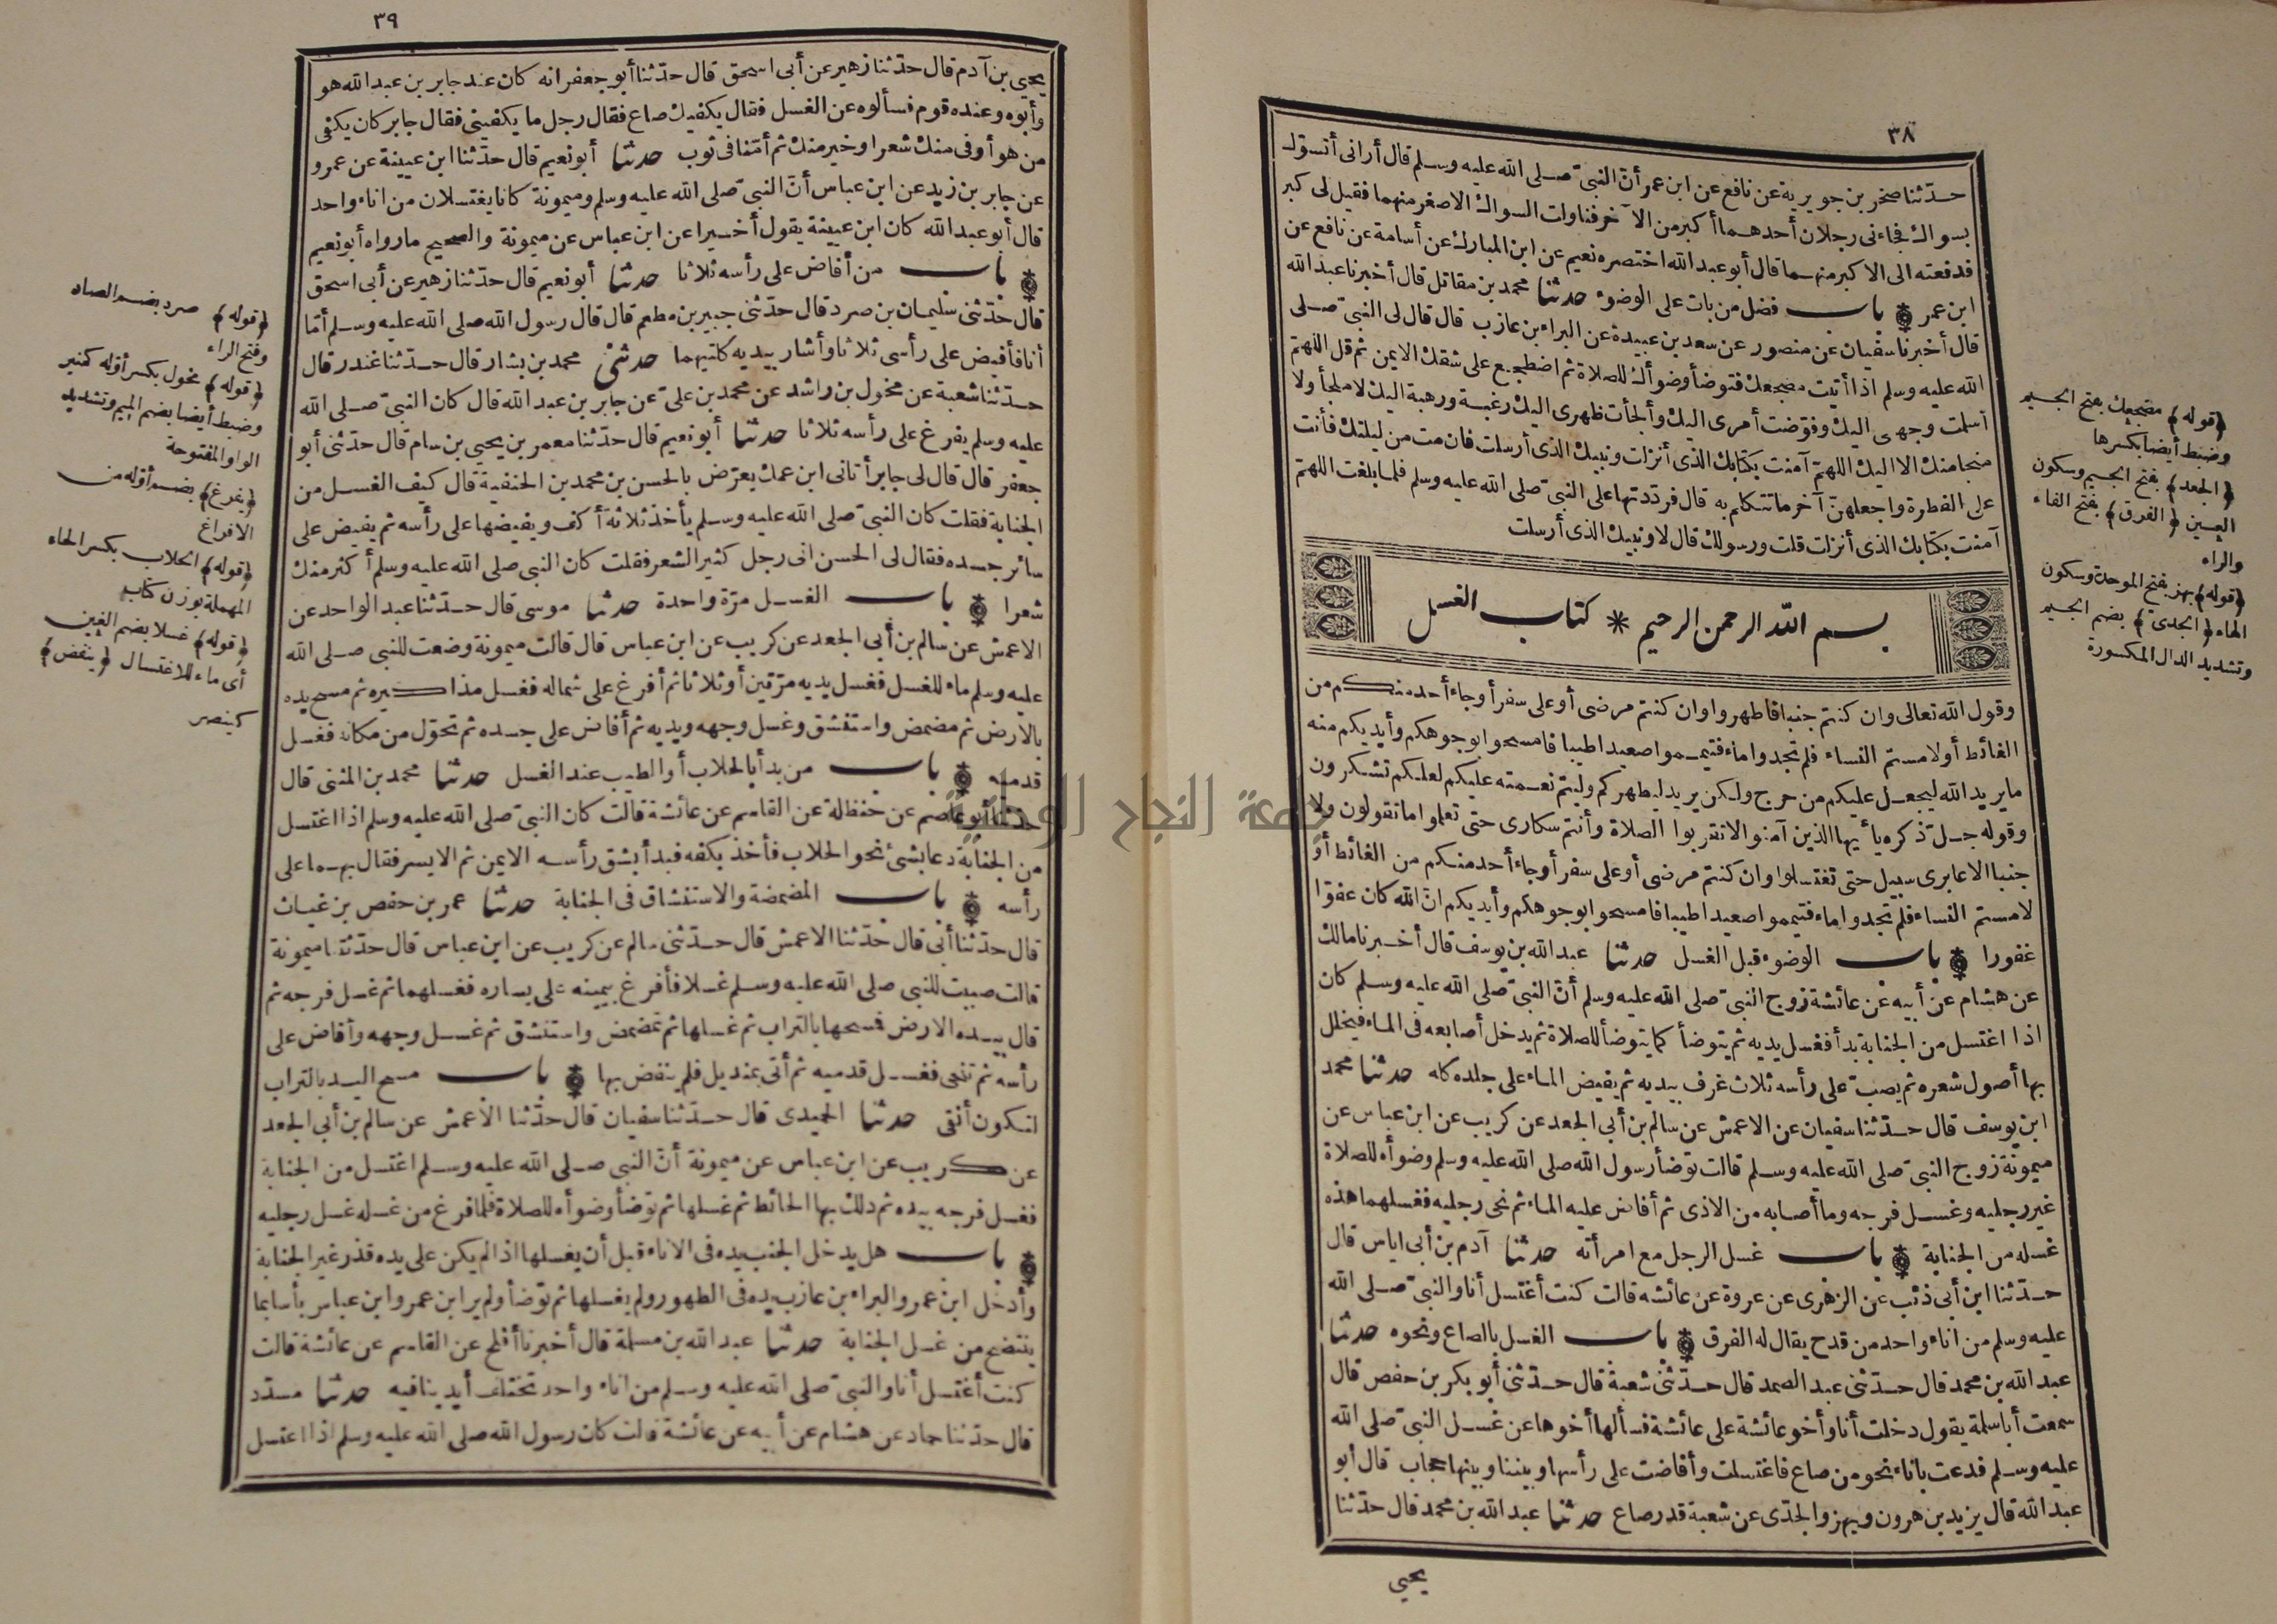 ٣٨
حدّثنا صخر بن جويرية عن نافع عن ابن عمر أنّ النبيّ صلى الله عليه وسلم قال أراني أتسوّك
بسواك فجاءني رجلان أحدهما أكبر من الآخر فناولت السواك الاصغر منهما فقيل لى كبر
فدفعته الى الاكبر منهما قال أبو عبد الله اختصره نعيم عن ابن المبارك عن أسامة عن نافع عن
ابن عمر باب فضل من بات على الوضوء حدثنا محمد بن مقاتل قال أخبرنا عبد الله
قال أخبرنا سفيان عن منصور عن سعد بن عبيدة عن البراء بن عازب قال قال لى النبيّ صلى
الله عليه وسلم اذا أتيت مضجعك فتوضأ وضوأك للصلاة ثم اضطجع على شقك الايمن ثم قل اللهمّ
أسلمت وجهى اليك وفوّضت أمرى اليك وألجأت ظهرى اليك رغبة ورهبة اليك لا ملجأ ولا
منجا منك الا اليك اللهمّ آمنت بكتابك الذى أنزلت ونبيك الذى أرسلت فان مت من ليلتك فأنت
على الفطرة واجعلهنّ آخر ما تتكلم به قال فردّدتها على النبيّ صلى الله عليه وسلم فلما بلغت اللهمّ
آمنت بكتابك الذى أنزلت قلت ورسولك قال لا ونبيك الذى أرسلت
بسم الله الرحمن الرحيم * كتاب الغسل
وقول الله تعالى وان كنتم جنبا فاطهروا وان كنتم مرضى أو على سفر أو جاء أحد منكم من
الغائط أو لامستم النساء فلم تجدوا ماء فتيمموا صعيدا طيبا فامسحوا بوجوهكم وأيديكم منه
ما يريد الله ليجعل عليكم من حرج ولكن يريد ليطهركم وليتم نعمته عليكم لعلكم تشكرون
وقوله جلّ ذكره يا أيها الذين آمنوا لا تقربوا الصلاة وأنتم سكارى حتى تعلموا ما تقولون ولا
جنبا الا عابرى سبيل حتى تغتسلوا وان كنتم مرضى أو على سفر أو جاء أحد منكم من الغائط أو
لامستم النساء فلم تجدوا ماء فتيمموا صعيدا طيبا فامسحوا بوجوهكم وأيديكم انّ الله كان عفوّا
غفورا باب الوضوء قبل الغسل حدثنا عبد الله بن يوسف قال أخبرنا مالك
عن هشام عن أبيه عن عائشة زوج النبيّ صلى الله عليه وسلم أنّ النبيّ صلى الله عليه وسلم كان
اذا اغتسل من الجنابة بدأ فغسل يديه ثم يتوضأ كما يتوضأ للصلاة ثم يدخل أصابعه فى الماء فيخلل
بها أصول شعره ثم يصبّ على رأسه ثلاث غرف بيديه ثم يفيض الماء على جلده كله حدثنا محمد
ابن يوسف قال حدّثنا سفيان عن الاعمش عن سالم بن أبى الجعد عن كريب عن ابن عباس عن
ميمونة زوج النبيّ صلى الله عليه وسلم قالت توضأ رسول الله صلى الله عليه وسلم وضوأه للصلاة
غير رجليه وغسل فرجه وما أصابه من الاذى ثم أفاض عليه الماء ثم نحى رجليه فغسلهما هذه
غسله من الجنابة باب غسل الرجل مع امرأته حدثنا آدم بن أبى اياس قال
حدّثنا ابن أبى ذئب عن الزهرى عن عروة عن عائشة قالت كنت أغتسل أنا والنبيّ صلى الله
عليه وسلم من اناء واحد من قدح يقال له الفرق باب الغسل بالصاع ونحوه حدثنا
عبد الله بن محمد قال حدّثنى عبد الصمد قال حدّثنى شعبة قال حدّثنى أبو بكر بن حفص قال
سمعت أبا سلمة يقول دخلت أنا وأخو عائشة على عائشة فسألها أخوها عن غسل النبيّ صلى الله
عليه وسلم فدعت باناء نحو من صاع فاغتسلت وأفاضت على رأسها وبيننا وبينها حجاب قال أبو
عبد الله قال يزيد بن هرون وبهز والجدّى عن شعبة قدر صاع حدثنا عبد الله بن محمد قال حدّثنا
يحيى
﴿قوله﴾ مضجعك بفتح الجيم
وضبط أيضا بكسرها
﴿الجعد﴾ بفتح الجيم وسكون
العين ﴿الفرق﴾ بفتح الفاء
والراء
﴿قوله﴾ بهز بفتح الموحدة وسكون
الهاء ﴿الجدى﴾ بضم الجيم
وتشديد الدال المكسورة
٣٩
يحيى بن آدم قال حدّثنا زهير عن أبى اسحق قال حدّثنا أبو جعفر انه كان عند جابر بن عبد الله هو
وأبوه وعنده قوم فسألوه عن الغسل فقال يكفيك صاع فقال رجل ما يكفينى فقال جابر كان يكفى
من هو أوفى منك شعرا وخير منك ثم أمّنا فى ثوب حدثنا أبو نعيم قال حدّثنا ابن عيينة عن عمرو
عن جابر بن زيد عن ابن عباس أنّ النبيّ صلى الله عليه وسلم وميمونة كانا يغتسلان من اناء واحد
قال أبو عبد الله كان ابن عيينة يقول أخيرا عن ابن عباس عن ميمونة والصحيح ما رواه أبو نعيم
باب من أفاض على رأسه ثلاثا حدثنا أبو نعيم قال حدّثنا زهير عن أبى اسحق
قال حدّثنى سليمان بن صرد قال حدّثنى جبير بن مطعم قال قال رسول الله صلى الله عليه وسلم أمّا
أنا فأفيض على رأسى ثلاثا وأشار بيديه كلتيهما حدثنى محمد بن بشار قال حدّثنا غندر قال
حدّثنا شعبة عن مخول بن راشد عن محمد بن علىّ عن جابر بن عبد الله قال كان النبيّ صلى الله
عليه وسلم يفرغ على رأسه ثلاثا حدثنا أبو نعيم قال حدّثنا معمر بن يحيى بن سام قال حدّثنى أبو
جعفر قال قال لى جابر أتانى ابن عمك يعرّض بالحسن بن محمد بن الحنفية قال كيف الغسل من
الجنابة فقلت كان النبيّ صلى الله عليه وسلم يأخذ ثلاثة أكف ويفيضها على رأسه ثم يفيض على
سائر جسده فقال لى الحسن انى رجل كثير الشعر فقلت كان النبى صلى الله عليه وسلم أكثر منك
شعرا باب الغسل مرّة واحدة حدثنا موسى قال حدّثنا عبد الواحد عن
الاعمش عن سالم بن أبى الجعد عن كريب عن ابن عباس قال قالت ميمونة وضعت للنبى صلى الله
عليه وسلم ماء للغسل فغسل يديه مرّتين أو ثلاثا ثم أفرغ على شماله فغسل مذاكيره ثم مسح يده
بالارض ثم مضمض واستنشق وغسل وجهه ويديه ثم أفاض على جسده ثم تحوّل من مكانه فغسل
قدميه باب من بدأ بالحلاب أو الطيب عند الغسل حدثنا محمد بن المثنى قال
حدثنا أبو عاصم عن حنظلة عن القاسم عن عائشة قالت كان النبيّ صلى الله عليه وسلم اذا اغتسل
من الجنابة دعا بشئ نحو الحلاب فأخذ بكفه فبدأ بشق رأسه الايمن ثم الايسر فقال بهما على
رأسه باب المضمضة والاستنشاق فى الجنابة حدثنا عمر بن حفص بن غياث
قال حدّثنا أبى قال حدّثنا الاعمش قال حدّثنى سالم عن كريب عن ابن عباس قال حدّثتنا ميمونة
قالت صببت للنبى صلى الله عليه وسلم غسلا فأفرغ بيمينه على يساره فغسلهما ثم غسل فرجه ثم
قال بيده الارض فمسحها بالتراب ثم غسلها ثم تمضمض واستنشق ثم غسل وجهه وأفاض على
رأسه ثم تنحى فغسل قدميه ثم أتى بمنديل فلم ينفض بها باب مسح اليد بالتراب
لتكون أنقى حدثنا الحميدى قال حدّثنا سفيان قال حدّثنا الأعمش عن سالم بن أبى الجعد
عن كريب عن ابن عباس عن ميمونة أنّ النبى صلى الله عليه وسلم اغتسل من الجنابة
فغسل فرجه بيده ثم دلك بها الحائط ثم غسلها ثم توضأ وضوأه للصلاة فلما فرغ من غسله غسل رجليه
باب هل يدخل الجنب يده فى الاناء قبل أن يغسلها اذا لم يكن على يده قذر غير الجنابة
وأدخل ابن عمر والبراء بن عازب يده فى الطهور ولم يغسلها ثم توضأ ولم ير ابن عمر وابن عباس بأسا بما
ينتضح من غسل الجنابة حدثنا عبد الله بن مسلمة قال أخبرنا أفلح عن القاسم عن عائشة قالت
كنت أغتسل أنا والنبيّ صلى الله عليه وسلم من اناء واحد تختلف أيدينا فيه حدثنا مسدّد
قال حدّثنا حماد عن هشام عن أبيه عن عائشة قالت كان رسول الله صلى الله عليه وسلم اذا اغتسل
﴿قوله﴾ صرد بضم الصاد
وفتح الراء
﴿قوله﴾ مخول بكسر أوّله كمنبر
وضبط أيضا بضم الميم وتشديد
الواو المفتوحة
﴿يفرغ﴾ بضم أوّله من
الافراغ
﴿قوله﴾ الحلاب بكسر الحاء
المهملة بوزن كتاب
﴿قوله﴾ غسلا بضم الغين
أى ماء للاغتسال ﴿ينفض﴾
كينصر
جامعة النجاح الوطنية